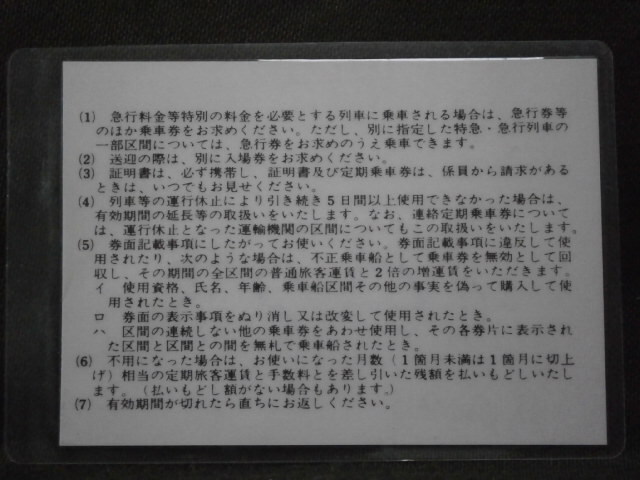 (1) 急行料金等特別の料金を必要とする列車に乗車される場合は、急行券等
のほか乗車券をお求めください。ただし、別に指定した特急・急行列車の
一部区間については、急行券をお求めのうえ乗車できます。
(2) 送迎の際は、別に入場券をお求めください。
(3) 証明書は、必ず携帯し、証明書及び定期乗車券は、係員から請求がある
ときは、いつでもお見せください。
(4) 列車等の運行休止により引き続き5日間以上使用できなかった場合は、
有効期間の延長等の取扱いをいたします。なお、連絡定期乗車券について
は、運行休止となった運輸機関の区間についてもこの取扱いをいたします。
(5) 券面記載事項にしたがってお使いください。券面記載事項に違反して使
用されたり、次のような場合は、不正乗車船として乗車券を無効として回
収し、その期間の全区間の普通旅客運賃と2倍の増運賃をいただきます。
イ 使用資格、氏名、年齢、乗車船区間その他の事実を偽って購入して使
用されたとき。
ロ 券面の表示事項をぬり消し又は改変して使用されたとき。
ハ 区間の連続しない他の乗車券をあわせ使用し、その各券片に表示され
た区間と区間との間を無札で乗車船されたとき。
(6) 不用になった場合は、お使いになった月数(1箇月未満は1箇月に切上
げ)相当の定期旅客運賃と手数料とを差し引いた残額を払いもどしいたし
ます。(払いもどし額がない場合もあります。)
(7) 有効期間が切れたら直ちにお返しください。